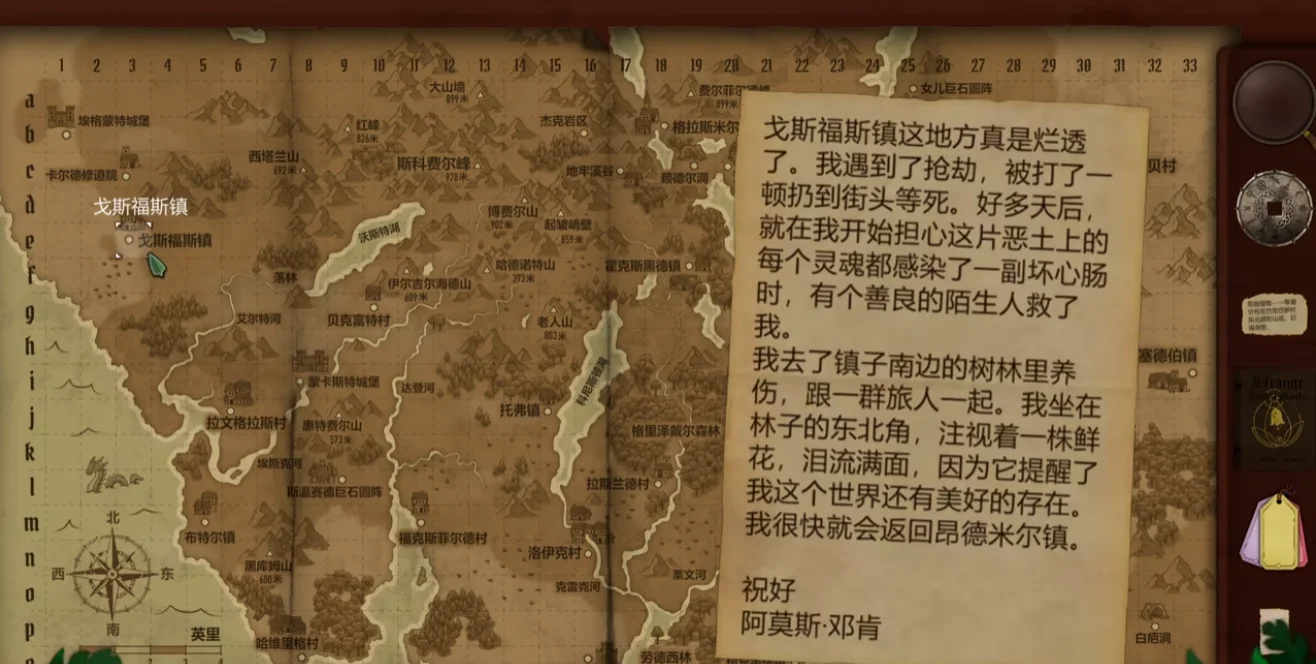 1 2 3 4 5 6 7 8 9 10 11 12 13 14 15 16 17 18 19 20 21 22 23 24 25 26 27 28 29 30 31 32 33
a
b
c
d
e
f
g
h
i
j
k
l
m
n
o
p
大山墙
899米
费尔菲尔德峰
899米
女儿巨石圆阵
埃格蒙特城堡
红峰
826米
杰克岩区
格拉斯米尔
西塔兰山
692米
斯科费尔峰
978米
地牢溪谷
赖德尔洞
贝村
卡尔德修道院
戈斯福斯镇
戈斯福斯镇
博费尔山
902米
起皱峭壁
859米
沃斯特湖
落林
伊尔吉尔海德山
609米
哈德诺特山
393米
霍克斯黑德镇
艾尔特河
贝克富特村
老人山
803米
塞德伯镇
蒙卡斯特城堡
达登河
科尼斯顿湖
托弗镇
拉文格拉斯村
惠特费尔山
573米
格里泽戴尔森林
埃斯克河
斯温赛德巨石圆阵
拉斯兰德村
布特尔镇
福克斯菲尔德村
洛伊克村
黑库姆山
600米
克雷克河
莱文河
哈维里格村
劳德西林
白疤洞
北
西
东
南
英里
戈斯福斯镇这地方真是烂透
了。我遇到了抢劫，被打了一
顿扔到街头等死。好多天后，
就在我开始担心这片恶土上的
每个灵魂都感染了一副坏心肠
时，有个善良的陌生人救了
我。
我去了镇子南边的树林里养
伤，跟一群旅人一起。我坐在
林子的东北角，注视着一株鲜
花，泪流满面，因为它提醒了
我这个世界还有美好的存在。
我很快就会返回昂德米尔镇。
祝好
阿莫斯·邓肯